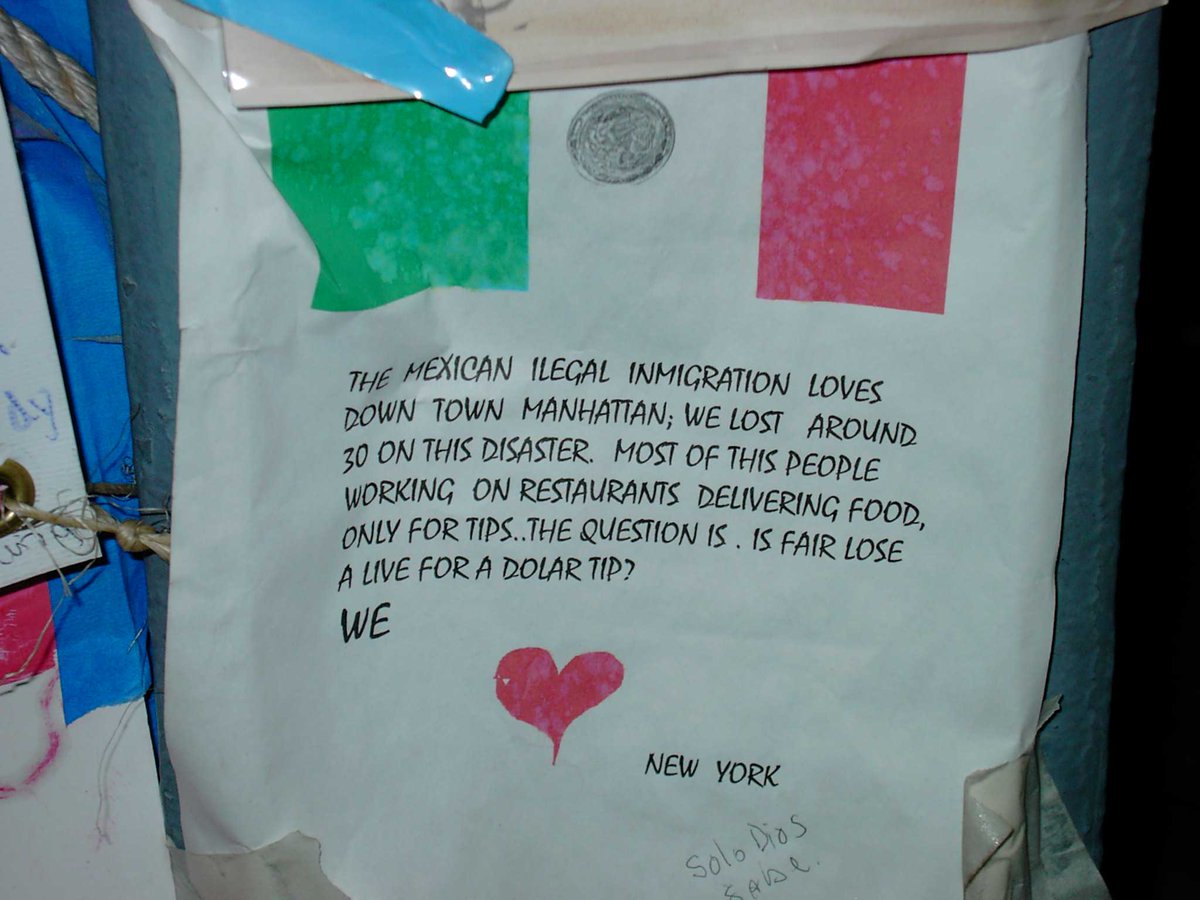 THE MEXICAN ILEGAL INMIGRATION LOVES
DOWN TOWN MANHATTAN; WE LOST AROUND
30 ON THIS DISASTER. MOST OF THIS PEOPLE
WORKING ON RESTAURANTS DELIVERING FOOD,
ONLY FOR TIPS..THE QUESTION IS . IS FAIR LOSE
A LIVE FOR A DOLAR TIP?
WE
NEW YORK
Solo Dios
Sabe.